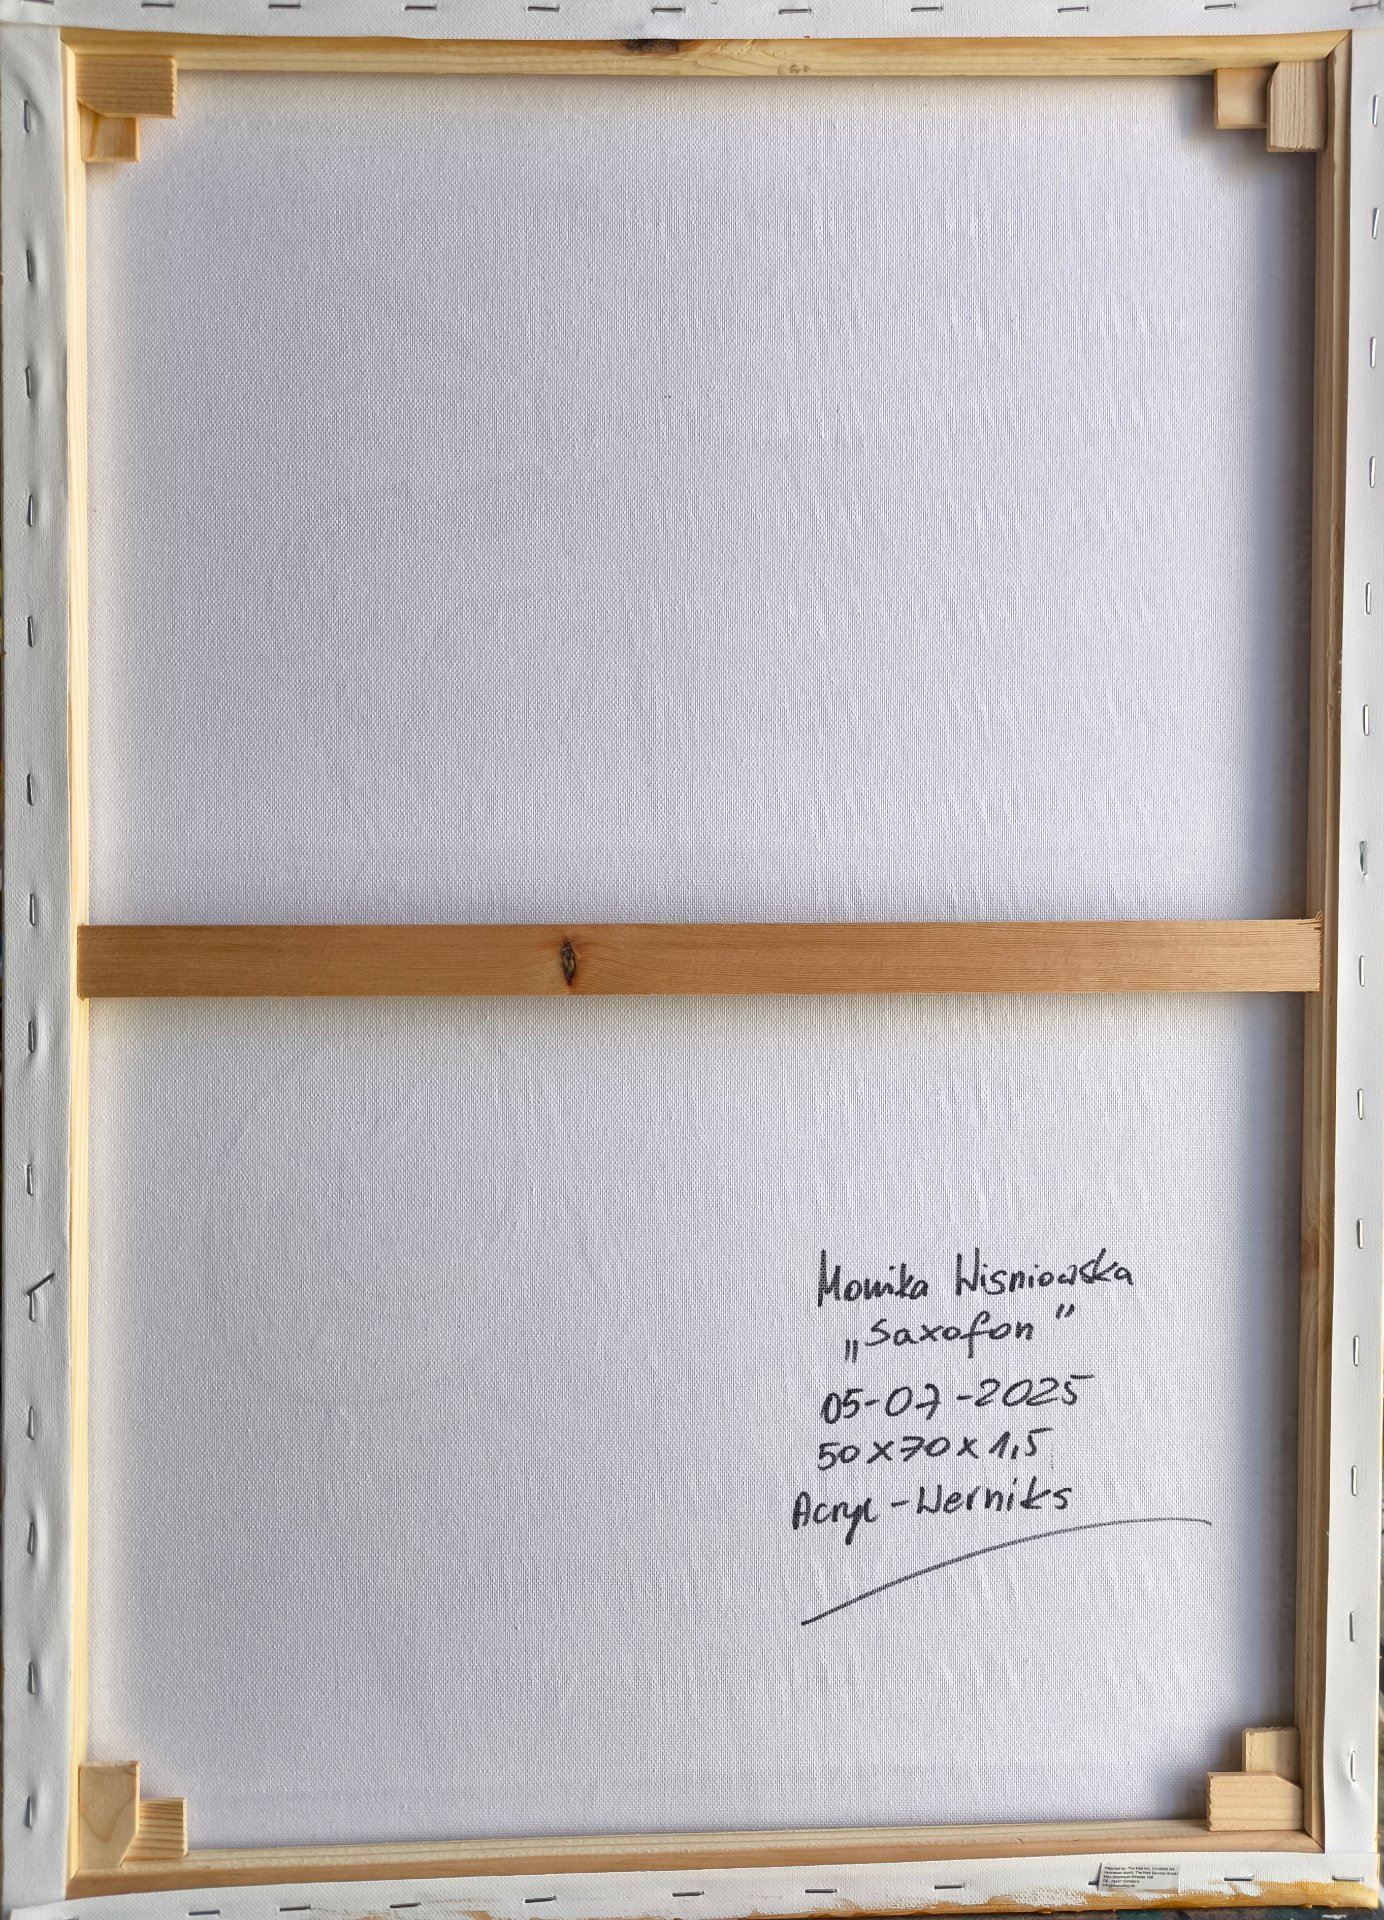 Monika Wisniowska
„Saxofon"
05-07-2025
50x70x1,5
Acryl-Werniks